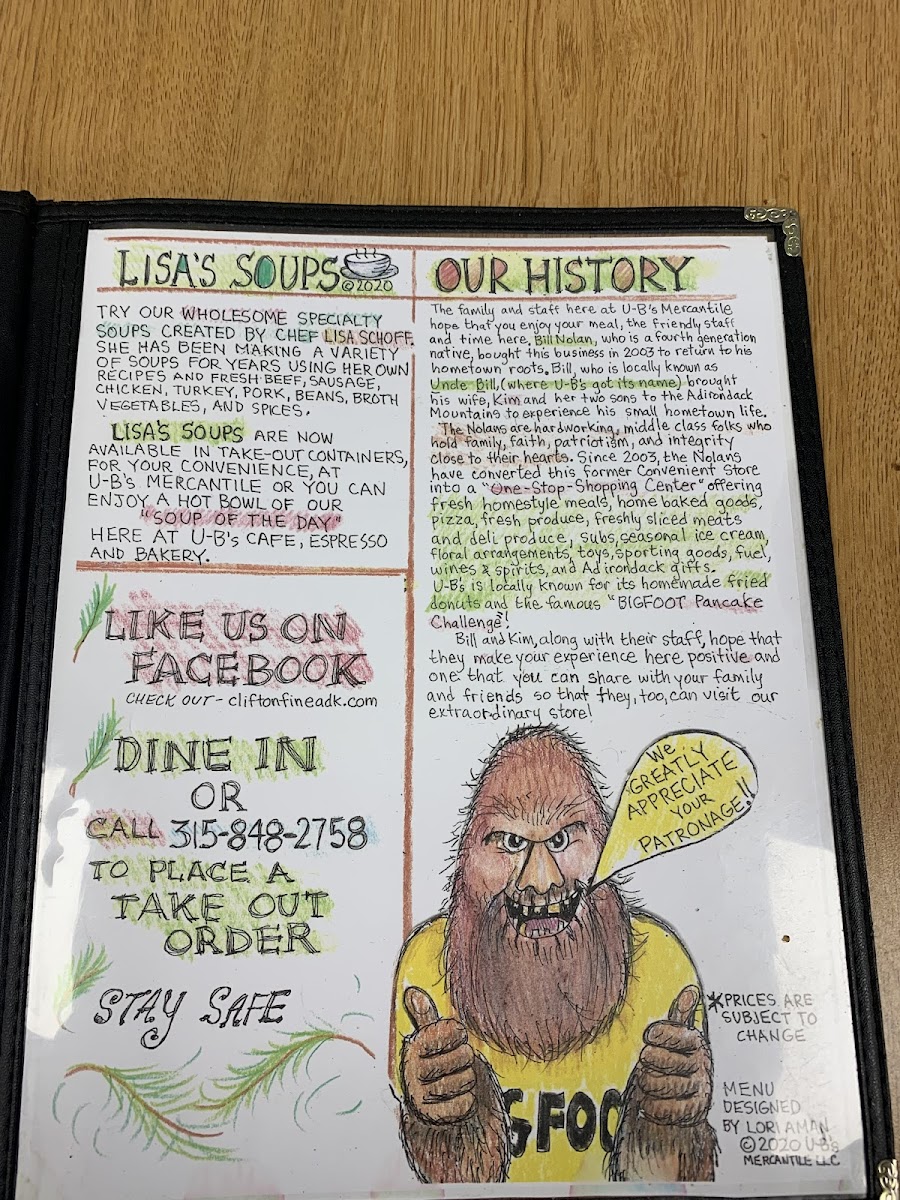 LISA'S SOUPS
©2020
TRY OUR WHOLESOME SPECIALTY
SOUPS CREATED BY CHEF LISA SCHOFF.
SHE HAS BEEN MAKING A VARIETY
OF SOUPS FOR YEARS USING HER OWN
RECIPES AND FRESH BEEF, SAUSAGE,
CHICKEN, TURKEY, PORK, BEANS, BROTH
VEGETABLES, AND SPICES.
LISA'S SOUPS ARE NOW
AVAILABLE IN TAKE-OUT CONTAINERS,
FOR YOUR CONVENIENCE, AT
U-B'S MERCANTILE OR YOU CAN
ENJOY A HOT BOWL OF OUR
"SOUP OF THE DAY"
HERE AT U-B's CAFE, ESPRESSO
AND BAKERY.
LIKE US ON
FACEBOOK
CHECK OUT - cliftonfineadk.com
DINE IN
OR
CALL 315-848-2758
TO PLACE A
TAKE OUT
ORDER
STAY SAFE
OUR HISTORY
The family and staff here at U-B's Mercantile
hope that you enjoy your meal, the friendly staff
and time here. Bill Nolan, who is a fourth generation
native, bought this business in 2003 to return to his
hometown roots. Bill, who is locally known as
Uncle Bill, (where U-B's got its name) brought
his wife, Kim and her two sons to the Adirondack
Mountains to experience his small hometown life.
The Nolans are hardworking, middle class folks who
hold family, faith, patriotism, and integrity
close to their hearts. Since 2003, the Nolans
have converted this former Convenient Store
into a "One-Stop-Shopping Center" offering
fresh homestyle meals, home baked goods,
pizza, fresh produce, freshly sliced meats
and deli produce, subs, seasonal ice cream,
floral arrangements, toys, sporting goods, fuel,
wines & spirits, and Adirondack gifts.
U-B's is locally known for its homemade fried
donuts and the famous "BIGFOOT Pancake
Challenge!
Bill and Kim, along with their staff, hope that
they make your experience here positive and
one that you can share with your family
and friends so that they, too, can visit our
extraordinary store!
We
GREATLY
APPRECIATE
YOUR
PATRONAGE!!
GFOO
*PRICES ARE
SUBJECT TO
CHANGE
MENU
DESIGNED
BY LORI AMAN
© 2020 U-B's
MERCANTILE LLC